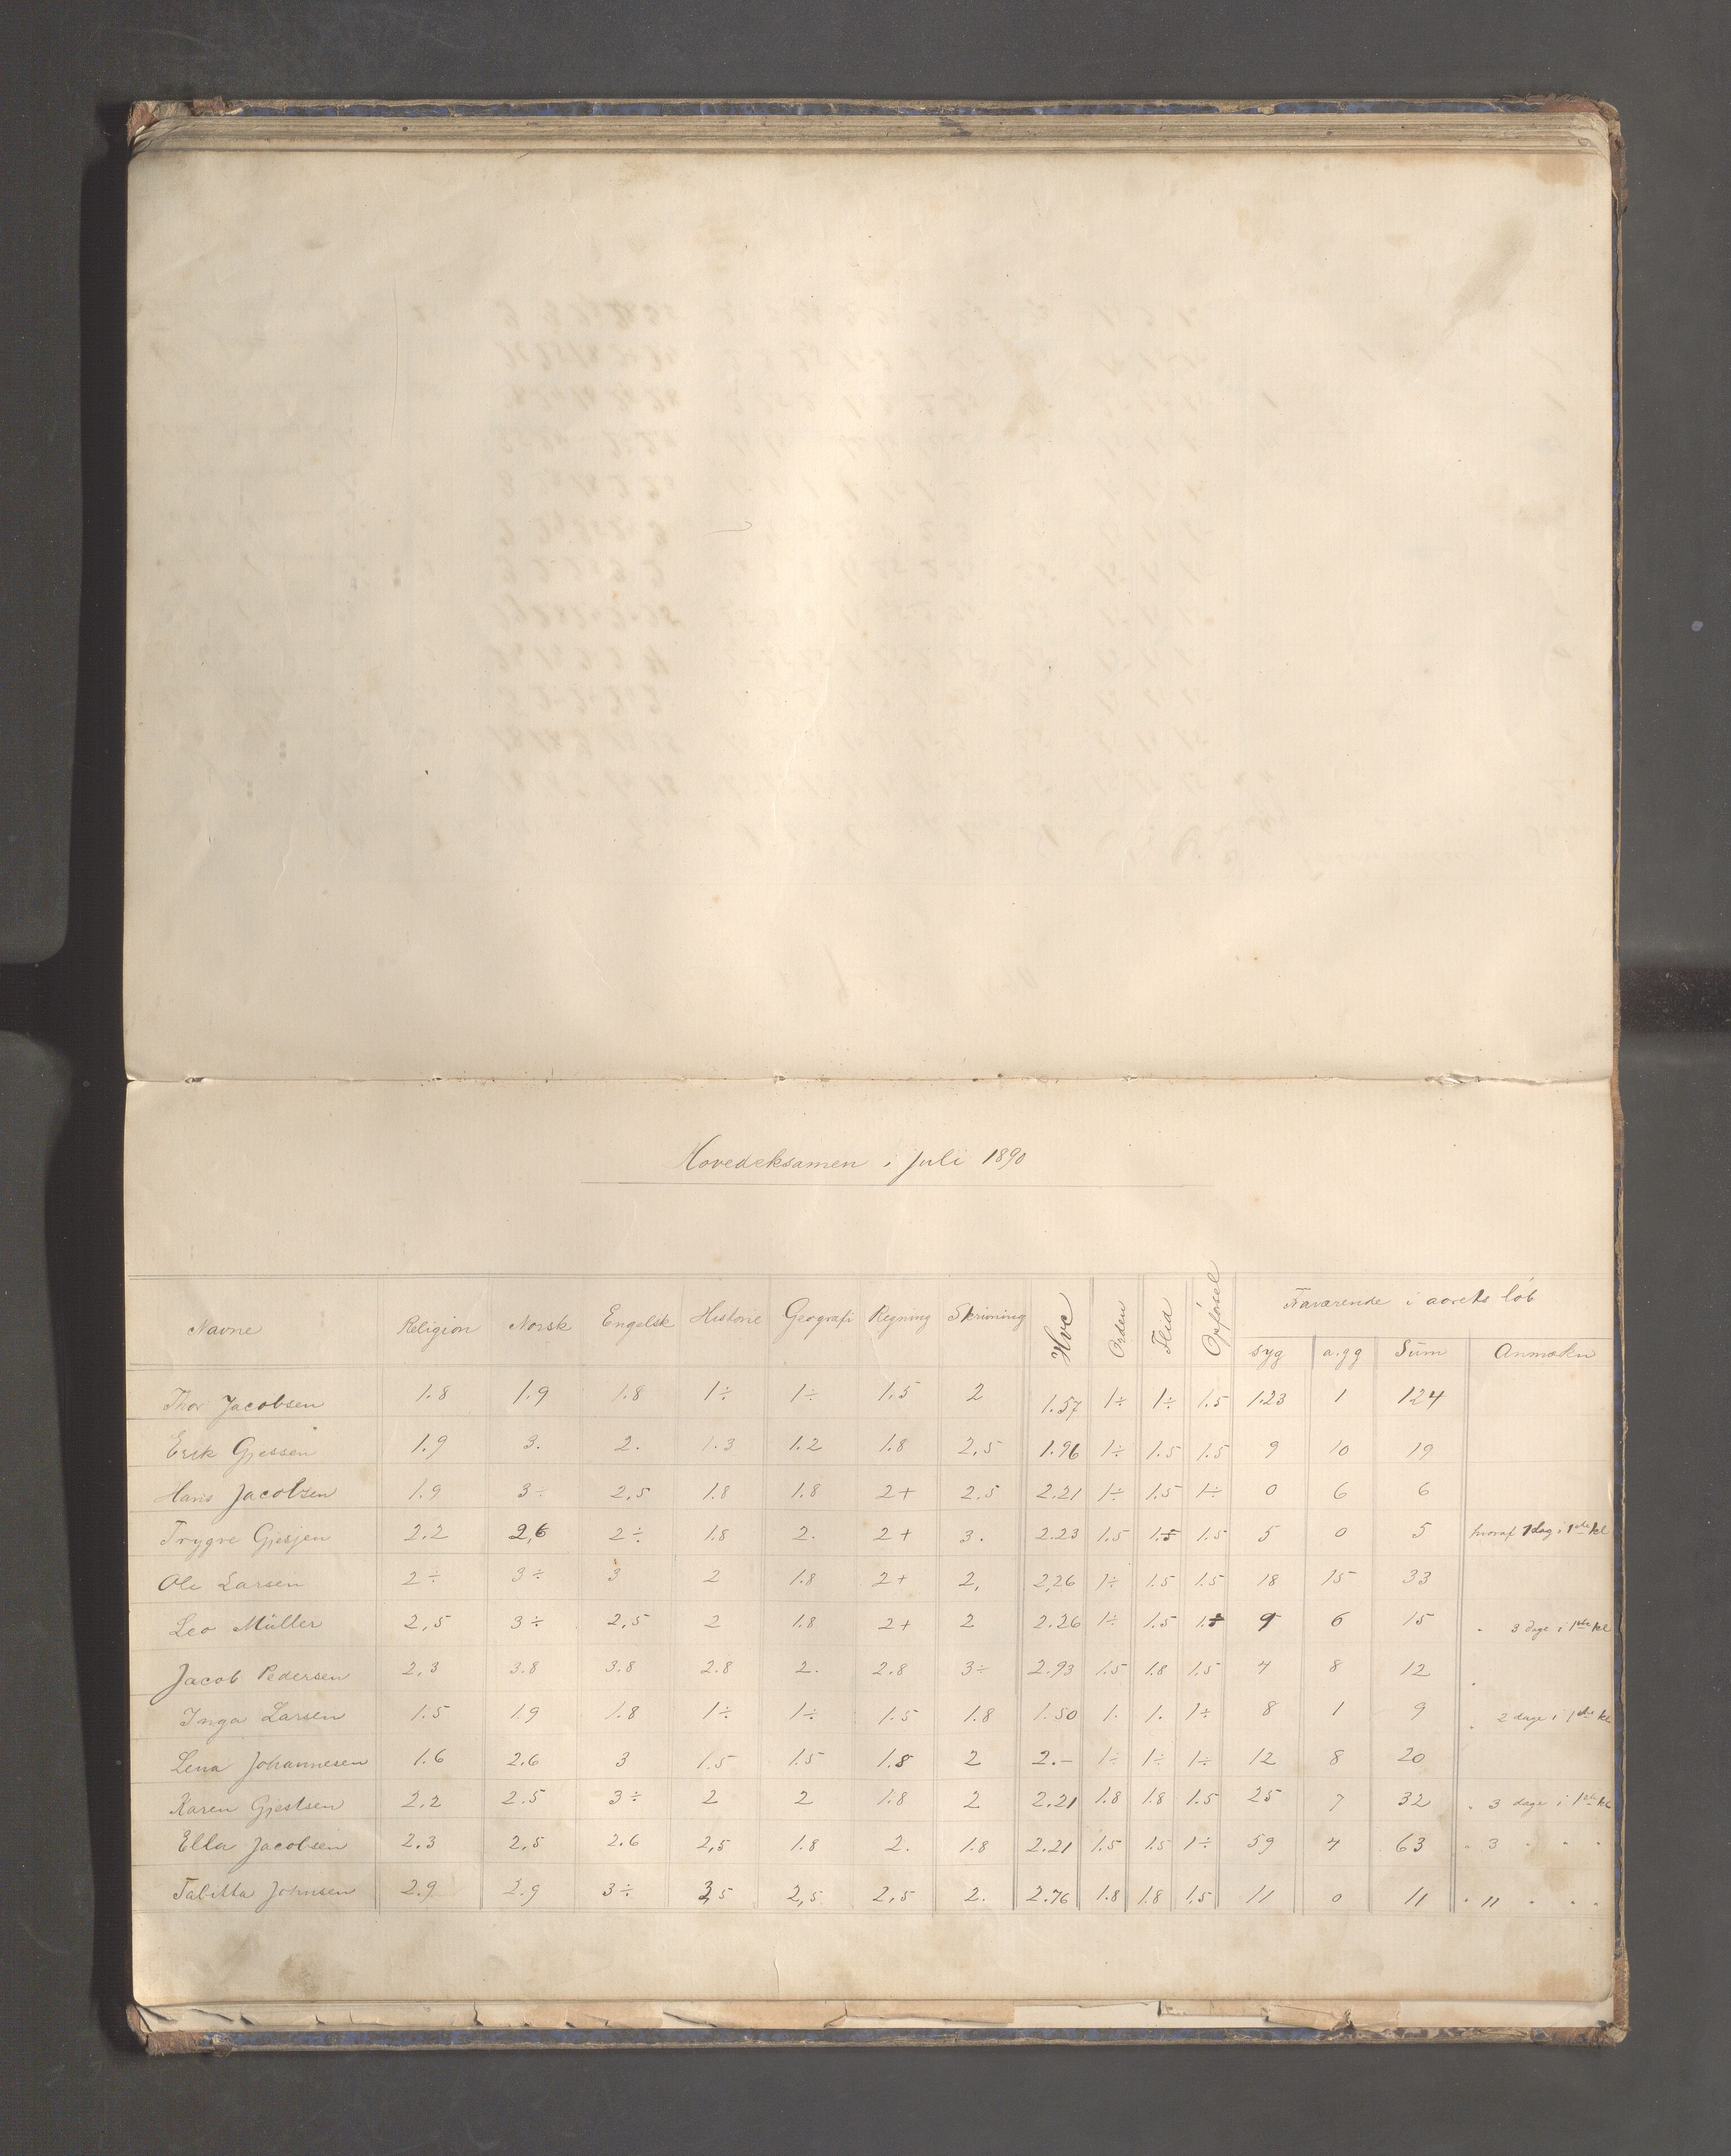 Hovedeksamen i Juli 1890
Navne Religion Norsk Engelsk Historie Geografi Regning Skrivning Hvc Orden Flid Opførsel Fraværende i aarets løb
syg a.gg Sum Anmækn
Thor Jacobsen 1.8 1.9 1.8 1÷ 1÷ 1.5 2 1.57 1÷ 1÷ 1.5 123 1 124
Erik Gjessen 1.9 3. 2. 1.3 1.2 1.8 2,5 1.96 1÷ 1.5 1.5 9 10 19
Hans Jacobsen 1.9 3÷ 2,5 1.8 1.8 2+ 2.5 2.21 1÷ 1.5 1÷ 0 6 6
Trygve Gjesjen 2.2 2,6 2÷ 1.8 2. 2+ 3. 2.23 1.5 1.5 1.5 5 0 5 hvoraf 1 dag i 1ste kl
Ole Larsen 2÷ 3÷ 3 2 1.8 2+ 2, 2,26 1÷ 1.5 1.5 18 15 33
Leo Müller 2,5 3÷ 2,5 2 1.8 2+ 2 2.26 1÷ 1.5 9 6 15 " 3 dage i 1ste kl
Jacob Pedersen 2,3 3.8 3.8 2.8 2. 2.8 3÷ 2.93 1.5 1.8 1.5 4 8 12
Inga Larsen 1.5 1.9 1.8 1÷ 1÷ 1.5 1.8 1.50 1. 1. 1÷ 8 1 9 " 2 dage i 1ste kl
Lena Johannesen 1.6 2.6 3 1.5 1.5 1.8 2 2.– 1÷ 1÷ 1÷ 12 8 20
Karen Gjestsen 2,2 2.5 3÷ 2 2 1.8 2 2.21 1.8 1.8 1.5 25 7 32 " 3 dage i 1ste kl
Ella Jacobsen 2.3 2,5 2.6 2,5 1.8 2. 1.8 2.21 1.5 1.5 1÷ 59 4 63 " 3 " " "
Tabitta Johnsen 2.9 2.9 3÷ 3,5 2,5 2,5 2. 2.76 1.8 1.8 1,5 11 0 11 " 11 " " "